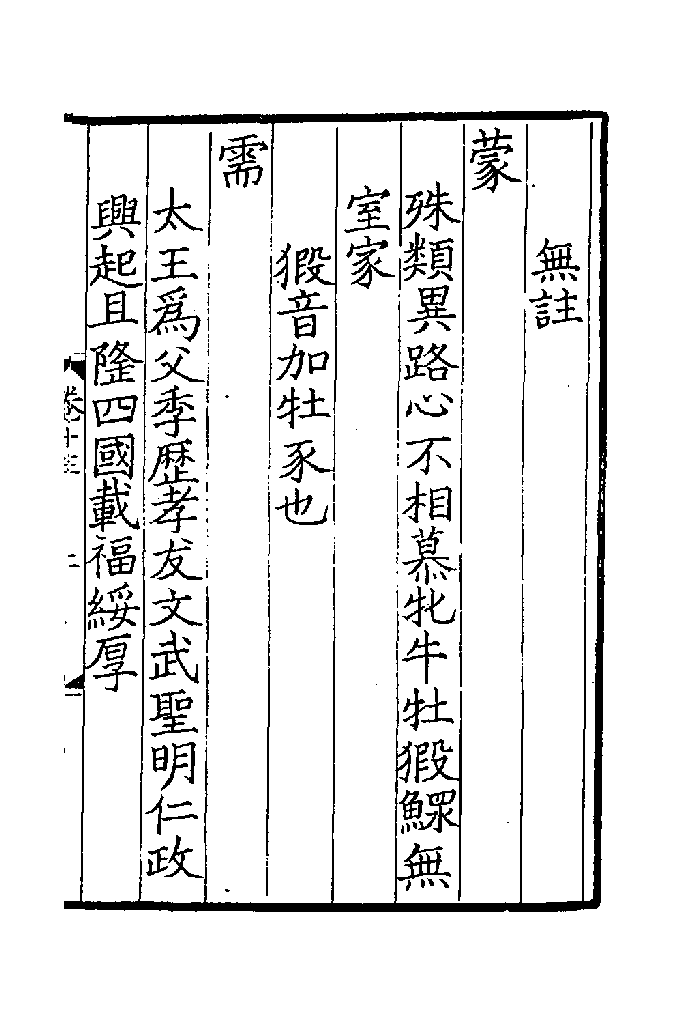 無註
蒙
殊類異路心不相慕牝牛牡猳鰥無
室家
猳音加牡豕也
需
太王爲父季歷孝友文武聖明仁政
興起且隆四國載福綏厚
卷十三
二